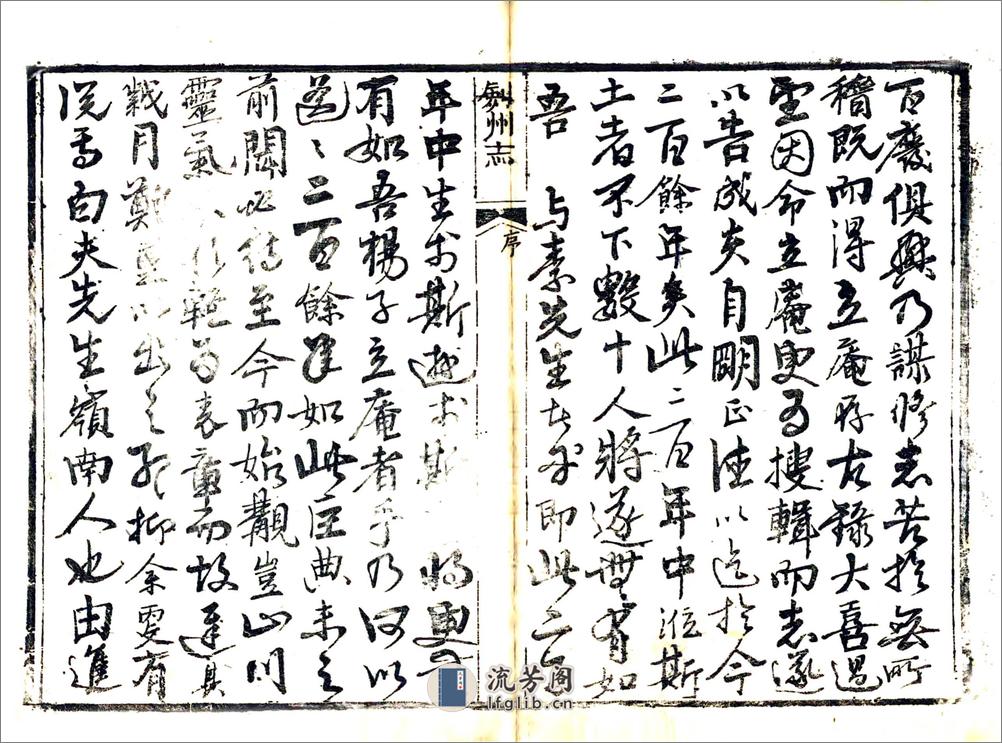 百廢俱興乃謀修志苦於無所
稽既而得立庵存古錄大喜過
望因命立庵更為搜輯而志遂
以告成矣自明正德以迄於今
二百餘年矣此二百年中蒞斯
土者不下數十人將遂無有如
吾 与素先生者乎即此二百
劍州志
序
年中生於斯遊於斯 將更
有如吾楊子立庵者乎乃何以
遥遥二百餘年如此巨典未之
前聞必待至今而始觀豈山川
靈氣 為表章而故遲其
歲月鄭重以出之耶抑余更有
說焉白夫先生嶺南人也由進
流芳阁
lfglib.cn